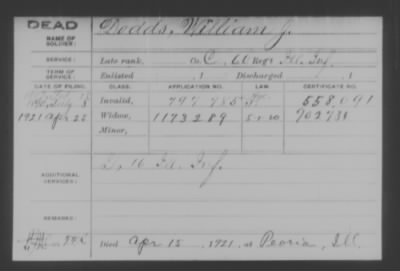 DEAD
NAME OF SOLDIER: Dodds, William J.
SERVICE: Late rank, Co. C, 60 Reg't Ill. Inf.
TERM OF SERVICE: Enlisted , 1 Discharged , 1
DATE OF FILING. CLASS. APPLICATION NO. LAW. CERTIFICATE NO.
July 8 Invalid, 797.785 558,091
1921 Apr 25 Widow, 1173289 902731
Minor,
ADDITIONAL SERVICES: D, 16 Inf.
REMARKS:
Died Apr 15, 1921, at Peoria, Ill.